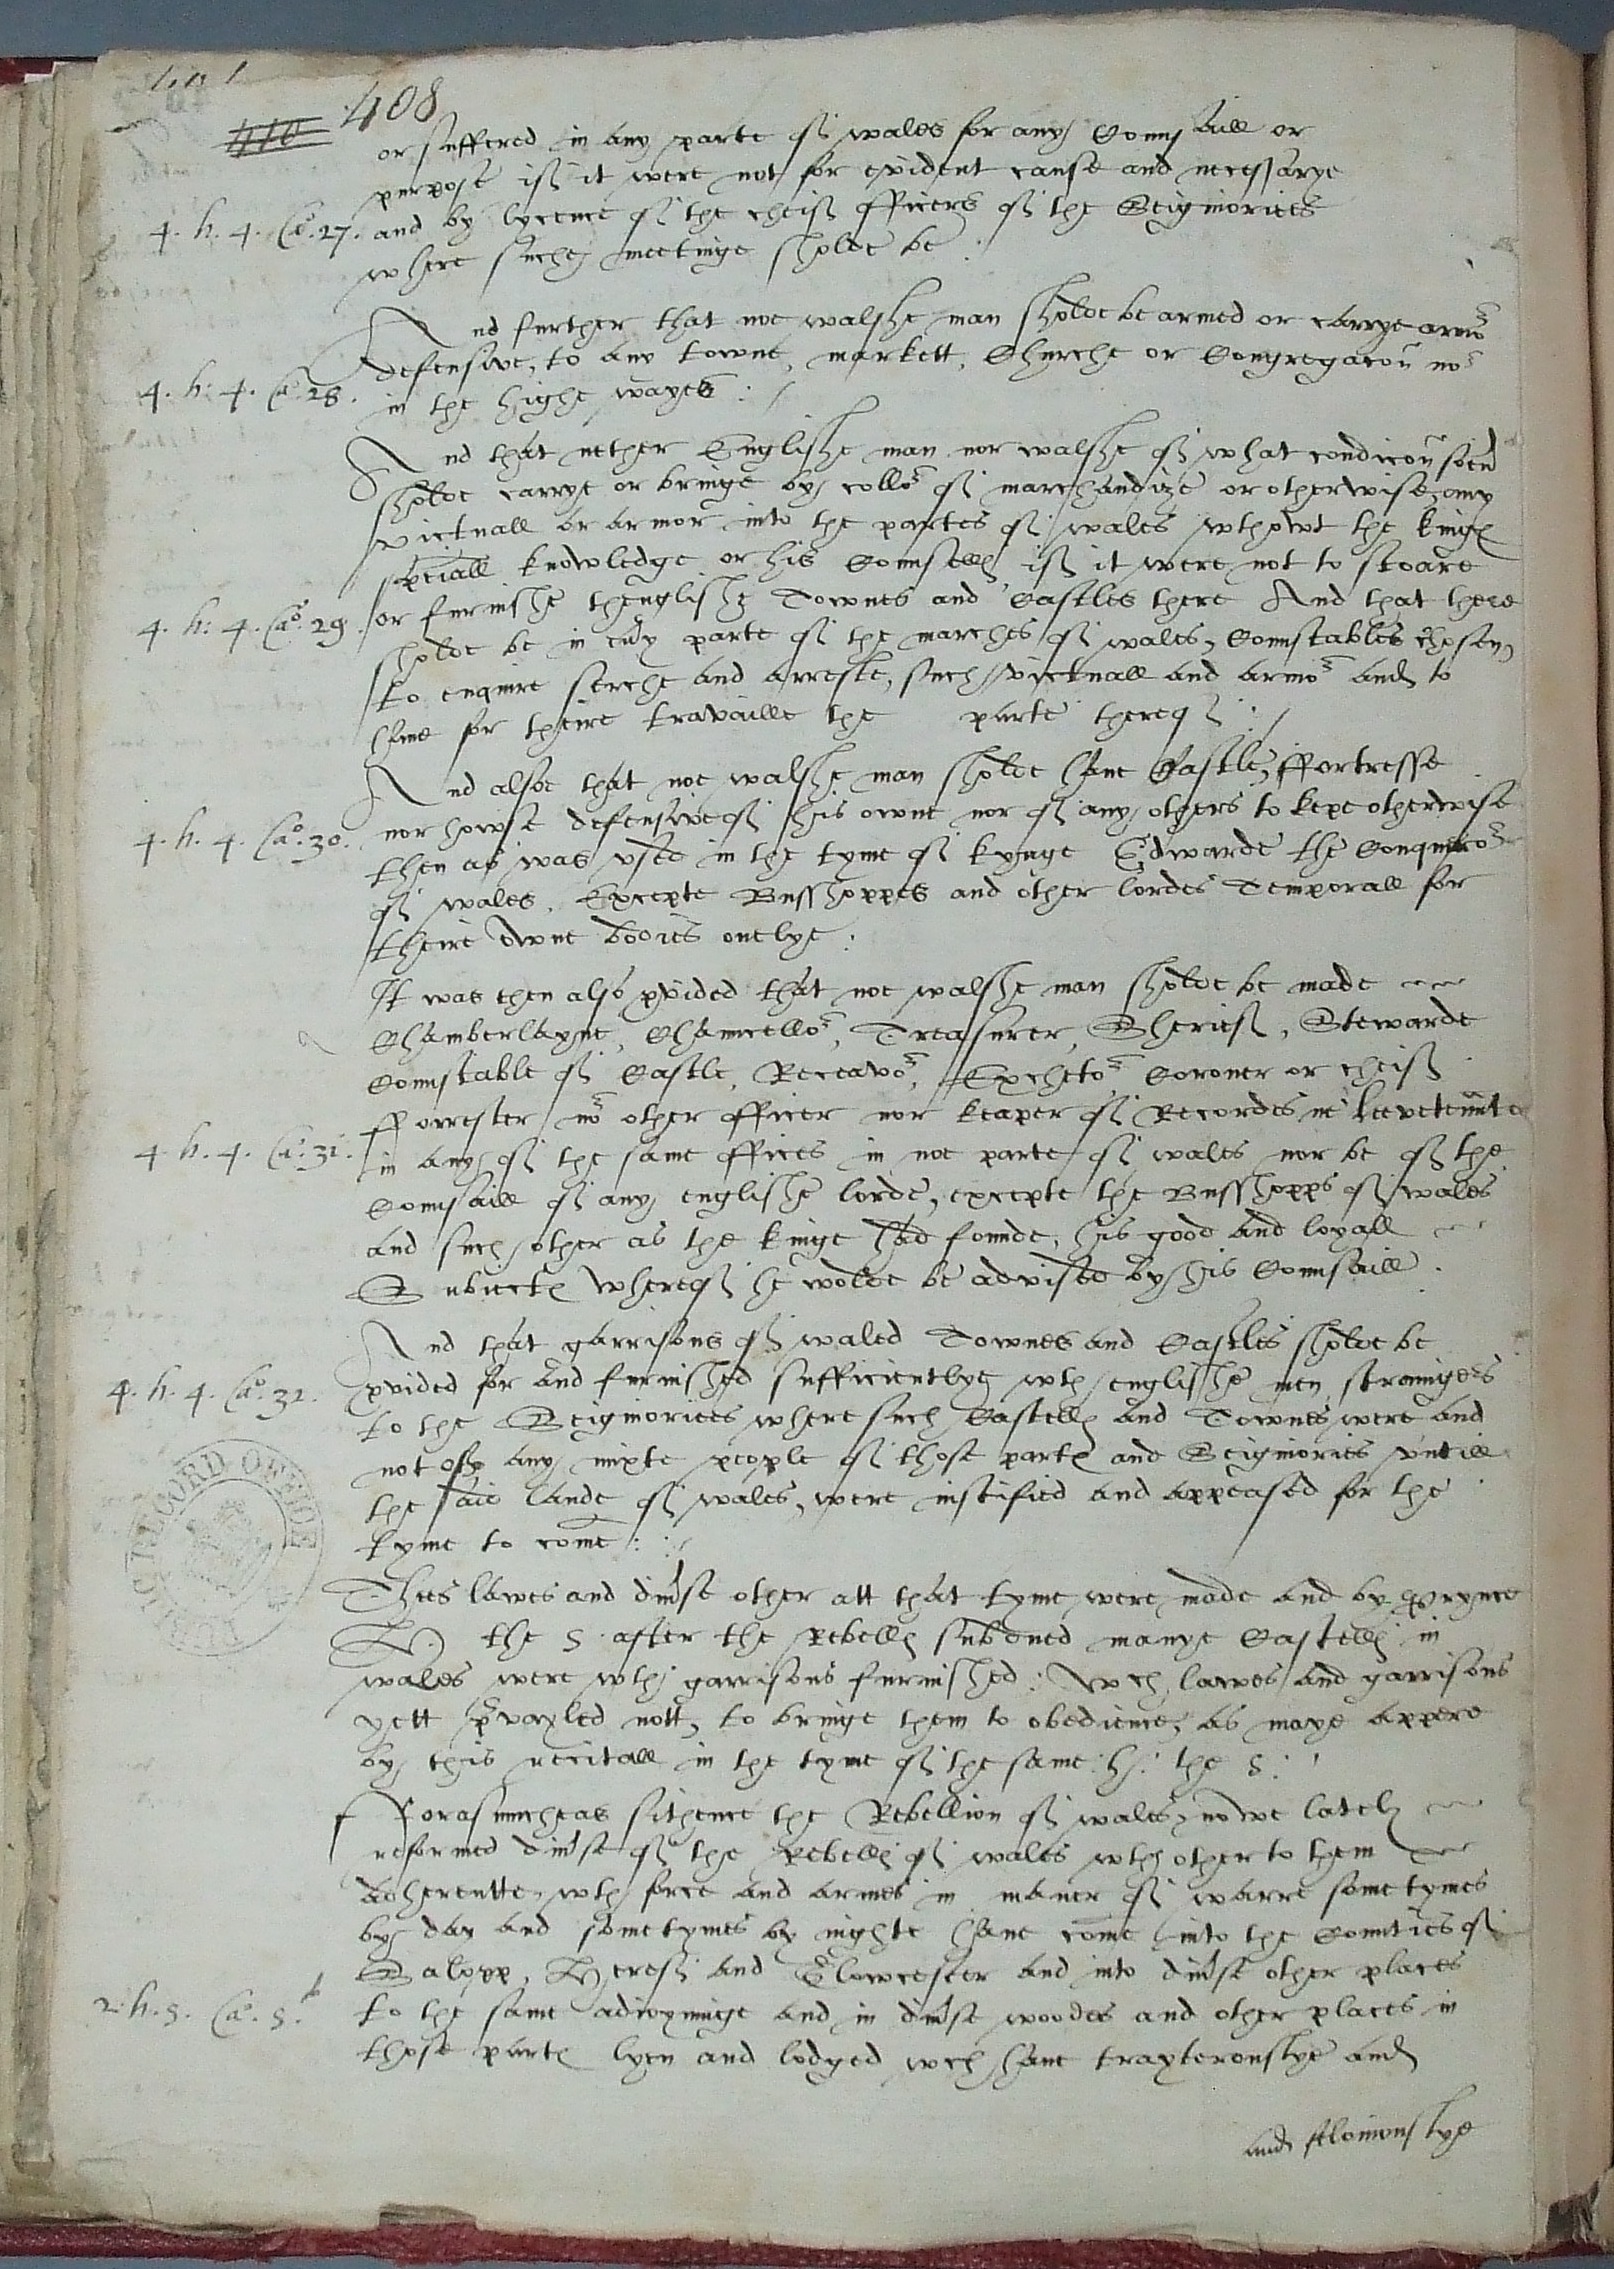 408
410
or suffered in any parte of wales for any Counsaill or
purpose if it were not for evident cause and necessarye
4. h. 4. Ca°. 27. and by lycence of the cheif officers of the Seignories
where suche meetinge sholde be :
And further that noe walshe man sholde be armed or carrye armor
defensive, to any towne, markett, Churche or Congregacon nor
4. h: 4. Ca°. 28. in the highe wayes : /
And that nether Englishe man nor walshe of what condicon soevr
sholde carrye or bringe by collor of marchandize or otherwise any
victuall or armor into the partes of wales wthowt the kinges
speciall knowledge or his Counselles if it were not to stoare
4. h: 4. Ca°. 29. or furnishe thenglishe Townes and Castles there And that there
sholde be in evry parte of the marches of wales, Counstables chosen
to enquire serche and arreste, such victuall and armor and to
have for theire travaille the parte thereof : /
And alsoe that noe walshe man sholde have Castle, ffortresse
4. h. 4. Ca°. 30. nor howse defensive of his owne nor of any others to kepe otherwise
then as was vsed in the tyme of kynge Edwarde the Conqueror
of wales. Excepte Busshoppes and other lordes Temporall for
theire owne bodies onelye :
It was then also pvided that noe walshe man sholde be made
Chamberlayne, Chauncellor, Treasurer, Sherief, Stewarde
Counstable of Castle, Receavor, Exchetor Coroner or cheif
fforrester nor other officer nor keaper of Recordes ne leevetennte
4. h. 4. Ca°. 31. in any of the same offices in noe parte of wales nor be of the
Counsaill of any englishe lorde, excepte the Busshopps of wales
and such other as the kinge had founde, his good and loyall
Subiectes whereof he wolde be advised by his Counsaill.
And that garrisons of waled Townes and Castles sholde be
4. h. 4. Ca°. 32. pvided for and furnished sufficientlye wth englishe men straungers
to the Seignories where such Castelles and Townes were and
not of any mixte people of those partes and Seignories vntill
the said lande of wales, were iustified and appeased for the
tyme to come : : /
Thes lawes and divse other att that tyme were made and by Prynce
H. the 5. after the Rebelles subdued manye Castelles in
wales were wth garrisons furnished : wch lawes and garrisons
yett pvayled nott, to bringe them to obedience, as maye appere
by this recitall in the tyme of the same h: the 5. :
Forasmucheas sithence the Rebellion of wales, nowe lately
reformed divse of the Rebelles of wales wth other to them
adherentte, wth force and armes in maner of warre sometymes
by day and sometymes by nighte have come into the Counties of
Salopp, Heref and Glowcester and into divse other places
2. h. 5. Ca°. 5. to the same adioyninge and in divse woodes and other places in
those partes lyen and lodged wch have trayterouslye and
and felonouslye
PUBLIC RECORD OFFICE